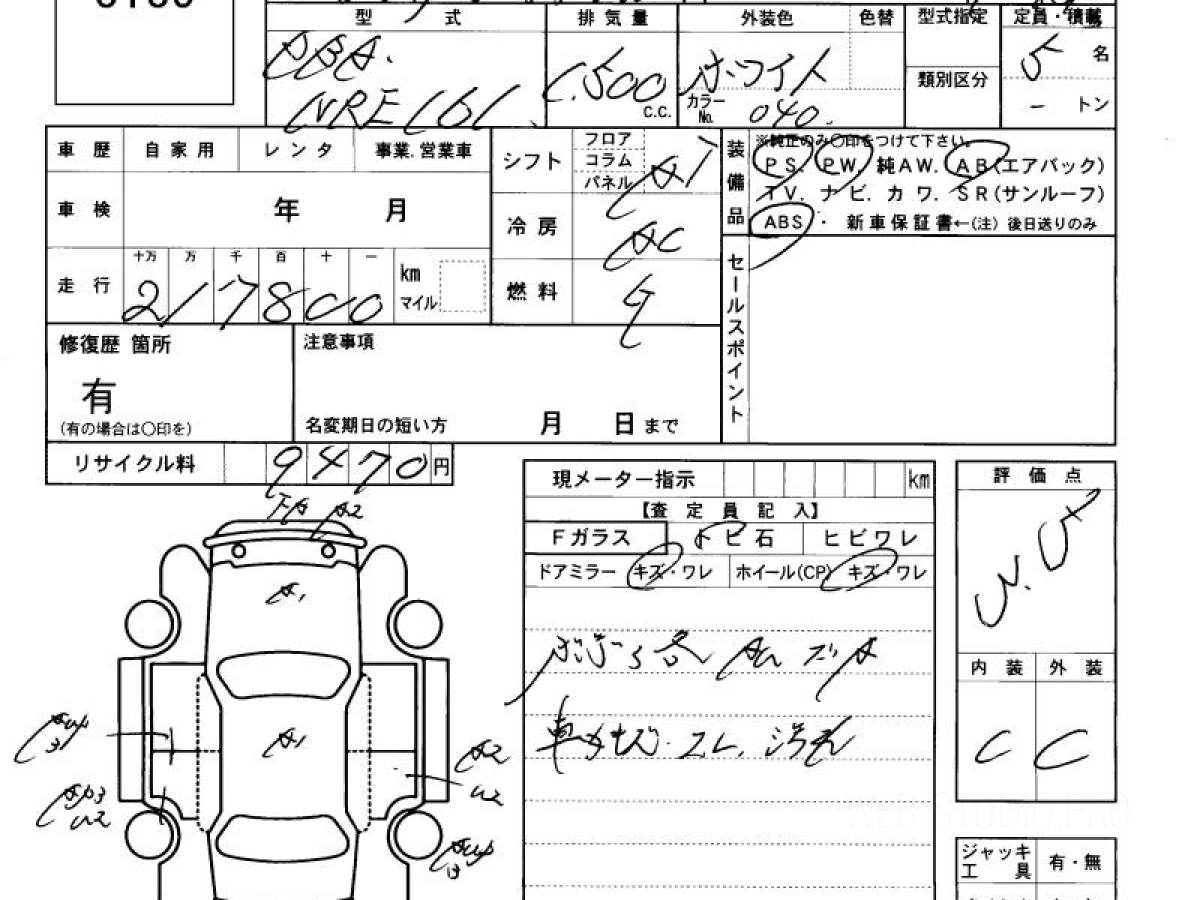 型 式 排 気 量 外装色 色替 型式指定 定員・積載
DBA.
NRE161. 1.500 c.c. ホワイト カラーNo. 040. 類別区分 5 名
- トン
車 歴 自 家 用 レ ン タ 事業.営業車
シフト フロア コラム パネル AT
装備品 ※純正のみ〇印をつけて下さい。
PS. PW. 純AW. AB(エアバック)
TV. ナビ. カワ. SR(サンルーフ)
ABS ・ 新車保証書←(注) 後日送りのみ
車 検 年 月
冷 房 AC
走 行 十万 万 千 百 十 一 km マイル
217800
燃 料 G
セールスポイント
修復歴 箇所
有
(有の場合は〇印を)
注意事項
名変期日の短い方 月 日 まで
リサイクル料 9470 円
現メーター指示 km
【査 定 員 記 入】
Fガラス トビ石 ヒビワレ
ドアミラー キズ・ワレ ホイール(CP) キズ・ワレ
評 価 点
内 装 外 装
C C
A2
A1
A1
A2
U2
U2
車内キズ・スレ、汚れ
ジャッキ 工 具 有・無
WEB-STUDIO.PRO